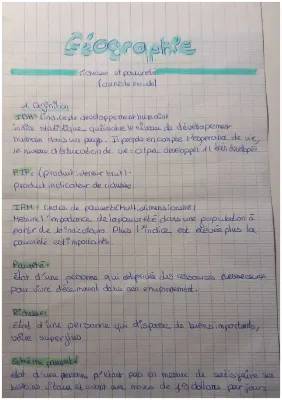 Géographie
richesse et pauvreté
1. Définition
IDH: Indice de développement humain
indice statistique, qui évalue le niveau de développement
humain dans un pays. Il prend en compte l'espérance de vie,
le niveau d'éducation de vie
PIB: (produit interieur brut)
produit indicateur de richesse.
IPM: (indice de pauvreté multidimensionnel)
Mesure l'importance de la pauvreté dans une population à
partir de 10 indicateurs. Plus l'indice est élevée plus la
pauvreté est importante.
Pauvreté:
état d'une personne qui est privée des ressources
pour vivre décemment dans son environnement.
Richesse:
état d'une personne qui dispose de biens importants,
voire superflus
Extrême pauvreté
état d'une personne n'étant pas en mesure de satisfaire ses
besoins vitaux et vivant avec moins de 1,9 dollars par jours